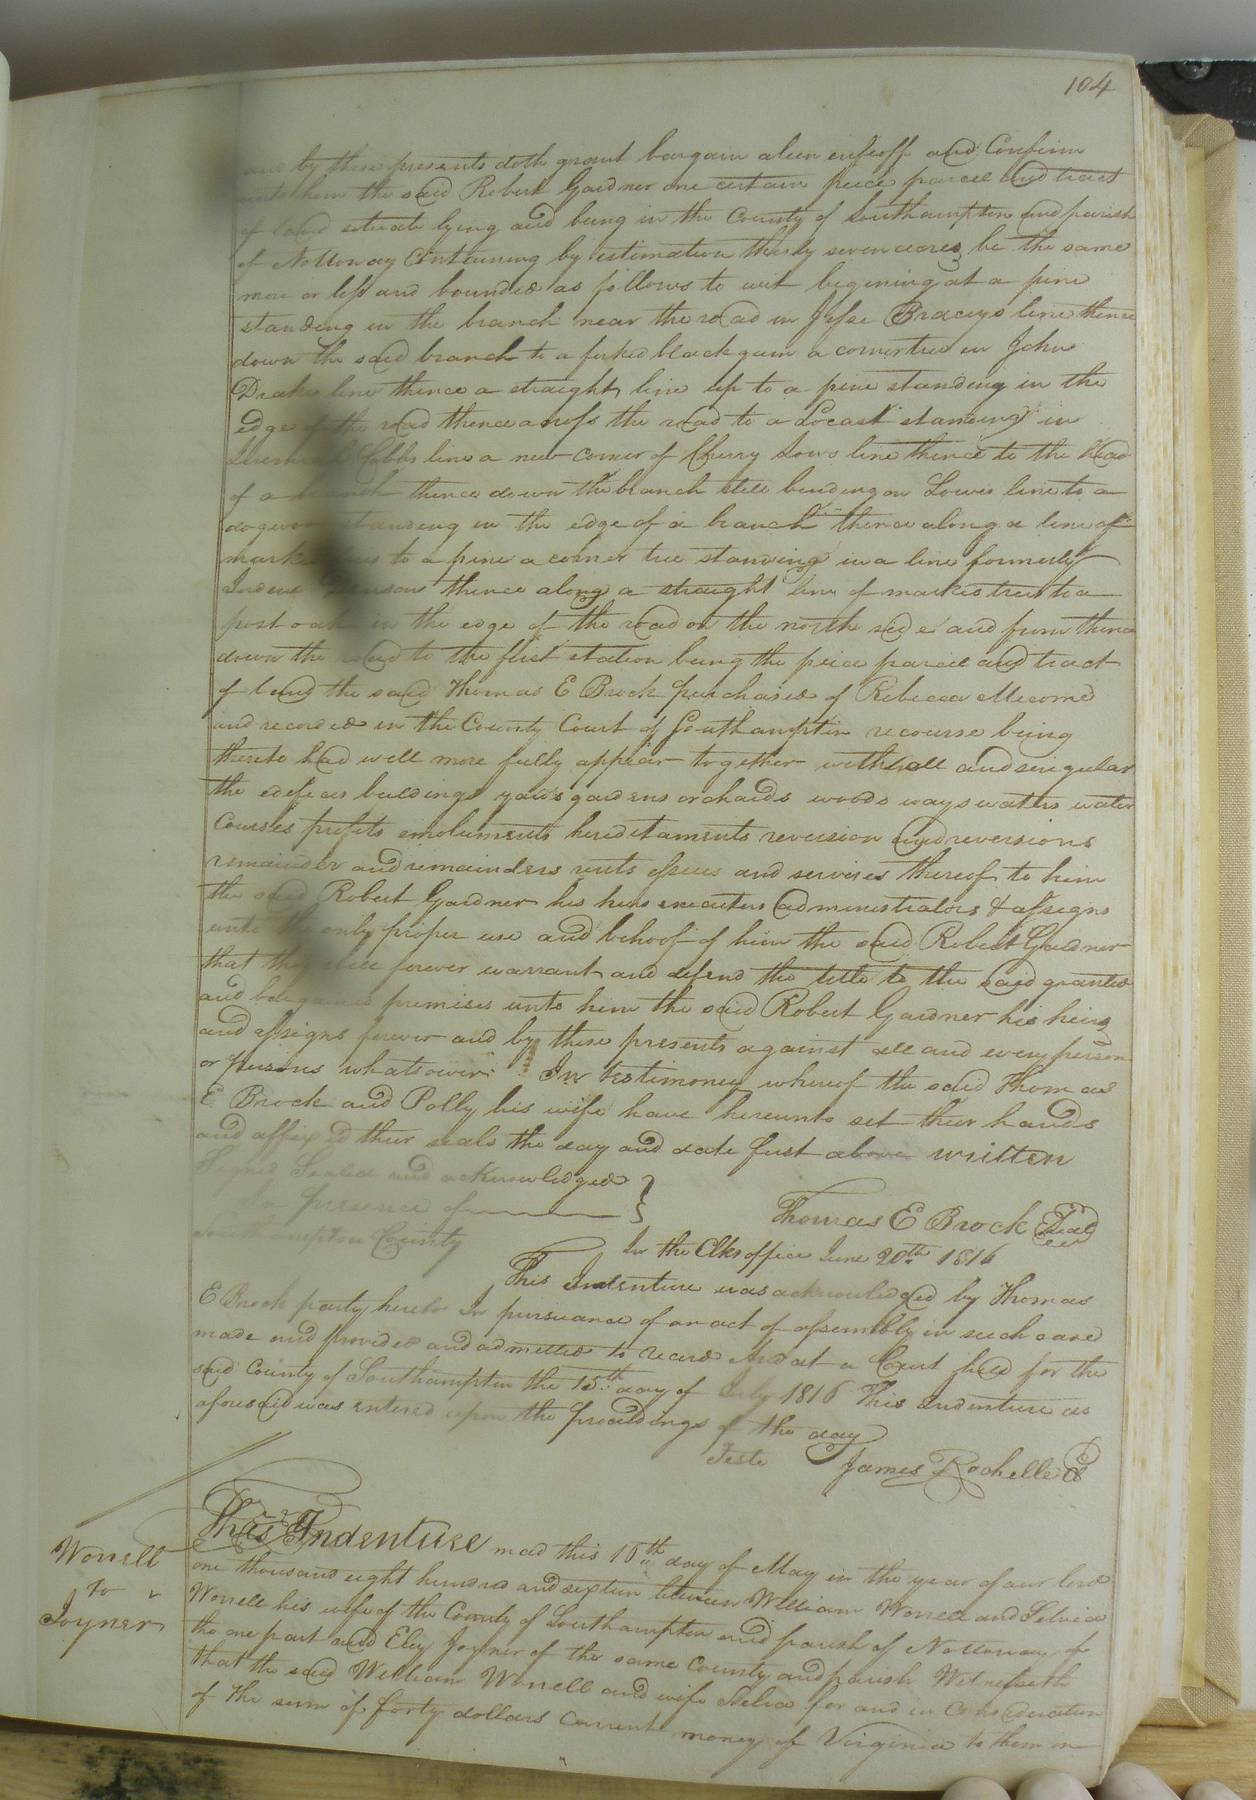 104
and by these presents doth grant bargain alien enfeoff and Confirm
unto him the said Robert Gardner one certain peice parcel and tract
of land situate lying and being in the County of Southampton and parish
of Nottoway Containing by estimation thirty seven acres be the same
more or less and bounded as follows to wit begining at a pine
standing in the branch near the road in Jesse Braceys line thence
down the said branch to a forked black gum a corner tree in John
Drakes line thence a straight line up to a pine standing in the
edge of the road thence across the road to a Locast standing in
Cobbs line a new corner of Cherry Lows line thence to the head
of a branch thence down the branch still binding on Lowes line to a
dogwood standing in the edge of a branch thence along a line of
marked trees to a pine a corner tree standing in a line formerly
thence along a straight line of marked trees to a
post oak in the edge of the road on the north side and from thence
down the road to the first station being the peice parcel and tract
of land the said Thomas E Brock purchased of Rebecca Mecome
and recorded in the County Court of Southampton recourse being
thereto had will more fully appear together with all and singular
the edifices buildings yards gardens orchards woods ways waters water
Courses profits emoluments hereditaments reversion and reversions
remainder and remainders rents issues and servises thereof to him
the said Robert Gardner his heirs executors administrators & assigns
unto the only proper use and behoof of him the said Robert Gardner
that they will forever warrant and defend the title to the said granted
and bargained premises unto him the said Robert Gardner his heirs
and assigns forever and by these presents against all and every person
or persons whatsoever In testimoney whereof the said Thomas
E Brock and Polly his wife have hereunto set their hands
and affixed their seals the day and date first above written
Signed Sealed and acknowledged }
In presence of
Thomas E Brock Seal
Southampton County
In the Clks office June 20th 1816
This Indenture was acknowledged by Thomas
E Brock party hereto In pursuance of an act of assembly in such case
made and provided and admitted to record And at a Court held for the
said County of Southampton the 15th day of July 1816 This Indenture as
aforesaid was entered upon the proceedings of the day
Teste James Rochelle C
Worrell
to
Joyner
This Indenture mad this 16th day of May in the year of our lord
one thousand eight hundred and sixteen between William Worrell and Selvia
Worrell his wife of the County of Southampton and parish of Nottoway of
the one part and Eley Joyner of the same County and parish Witnesseth
that the said William Worrell and wife Selvia for and in Consideration
of the sum of forty dollars Current money of Virginia to them in